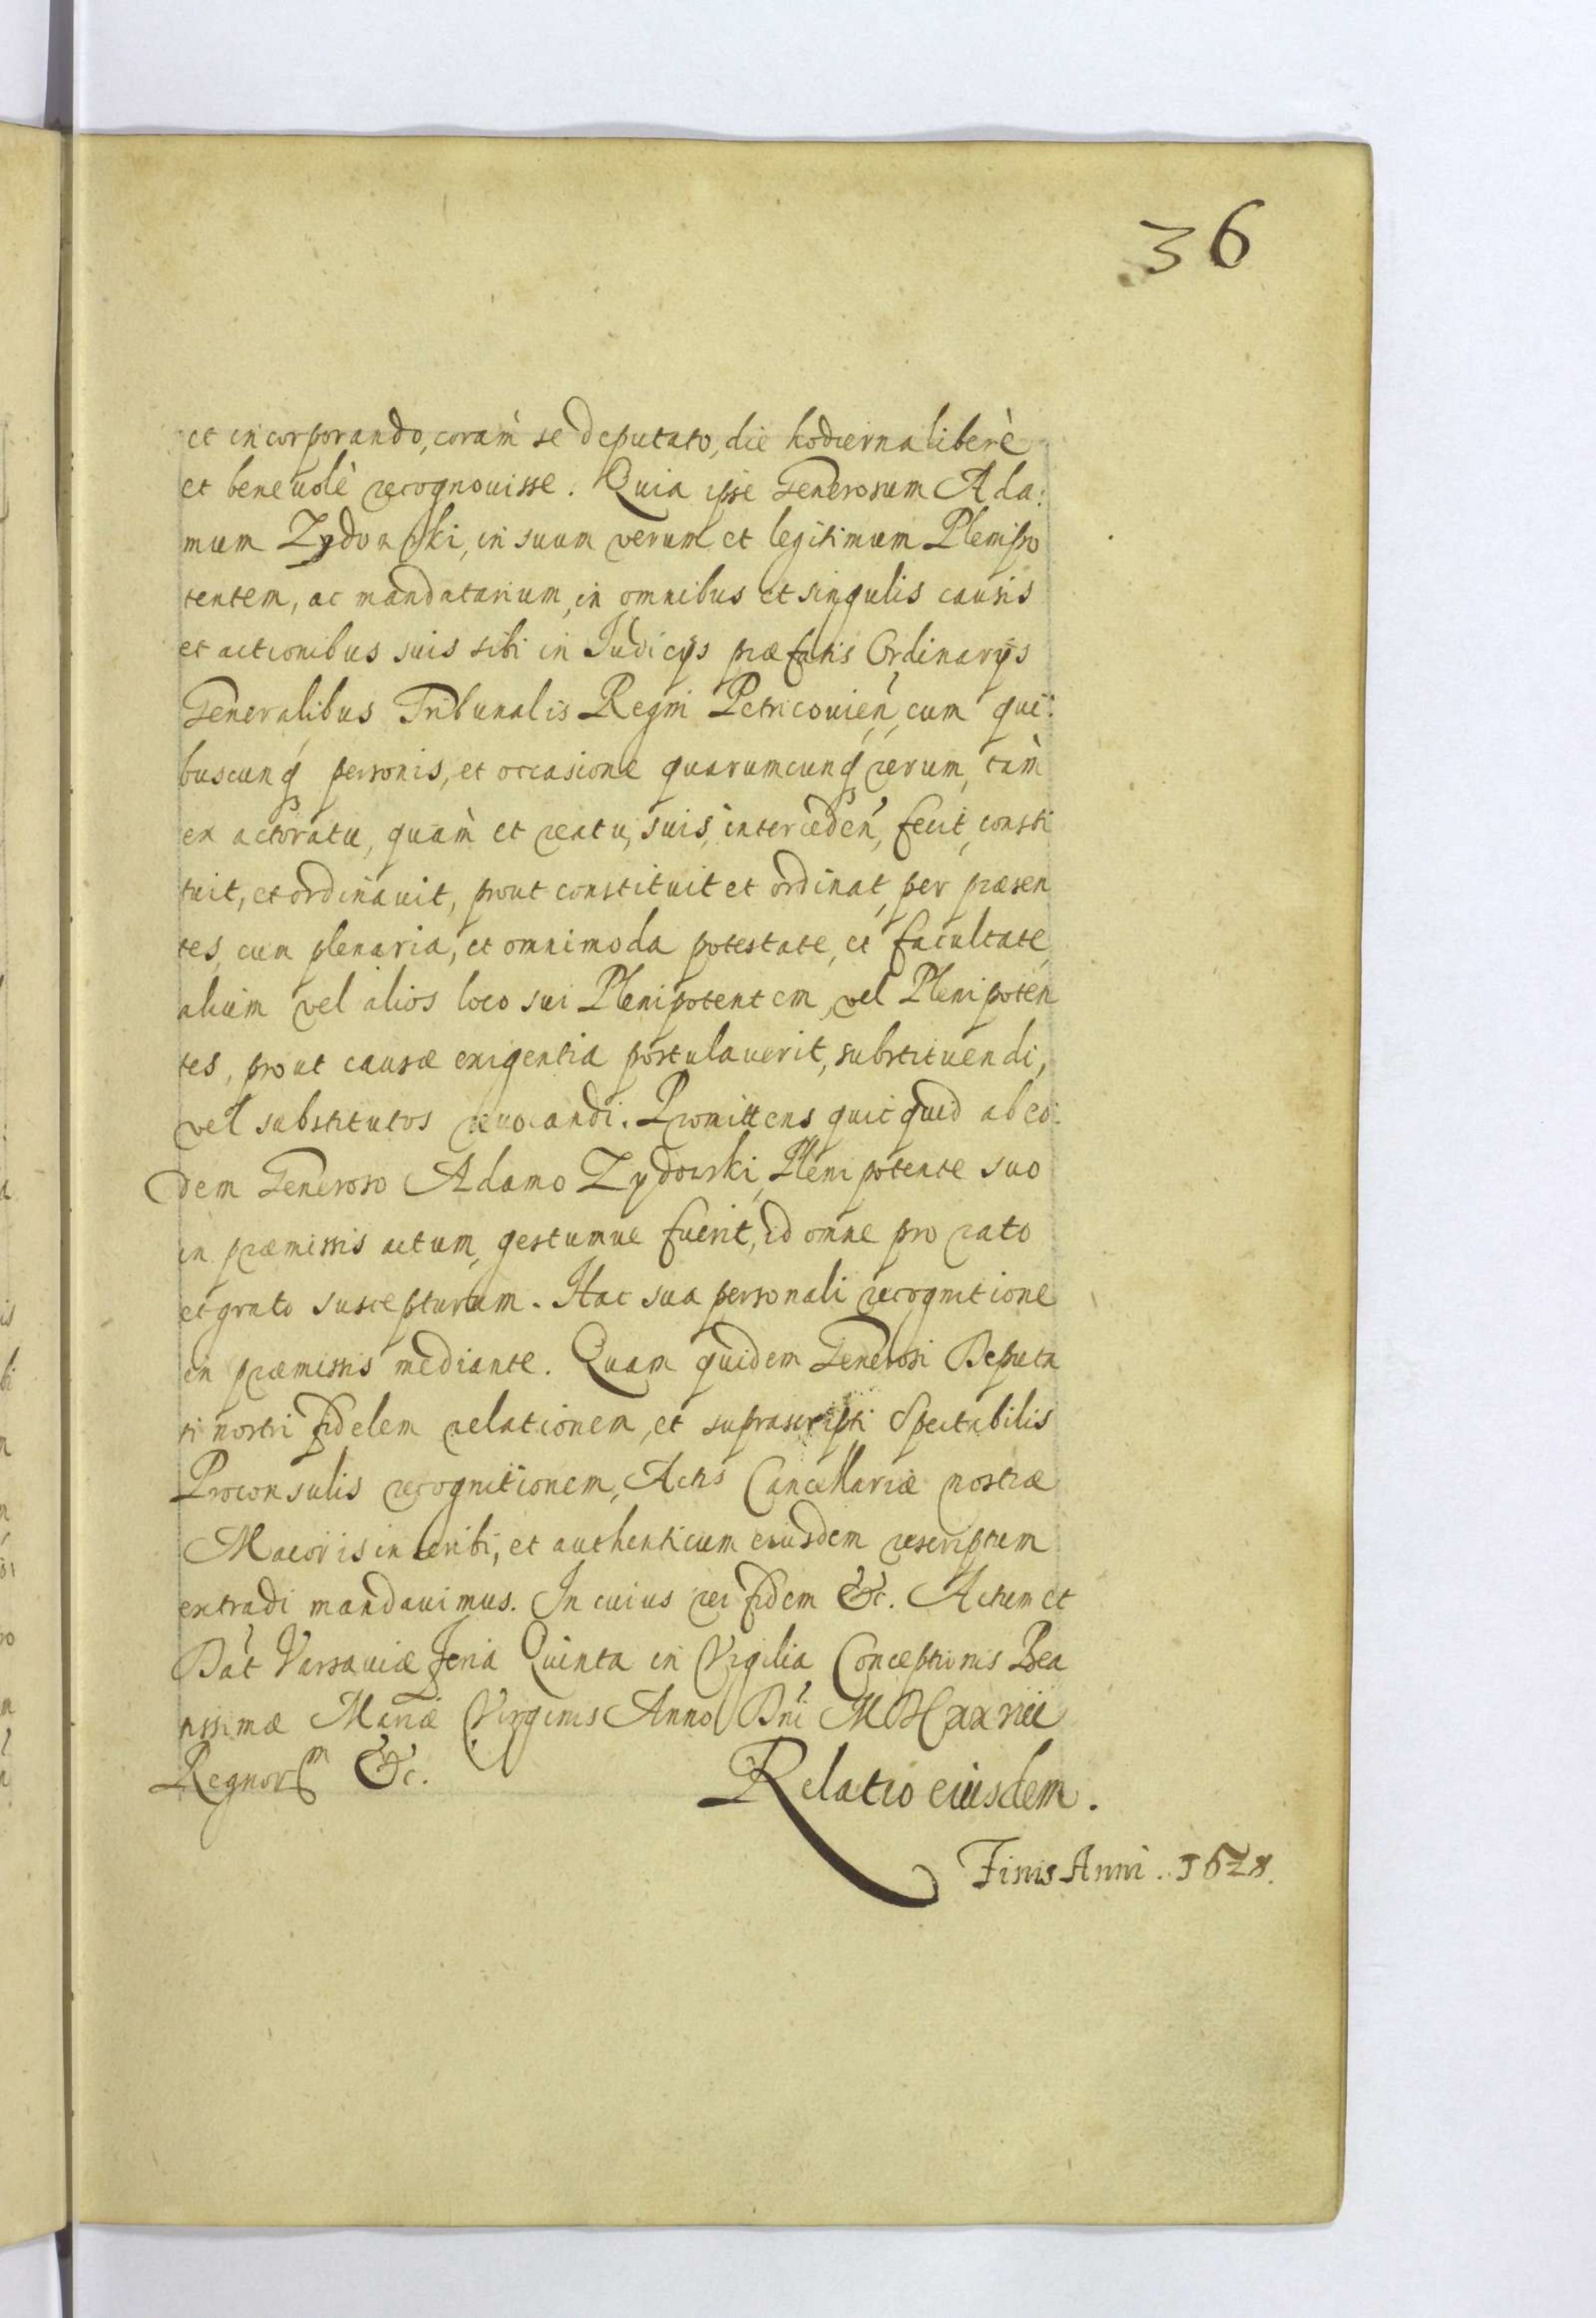 36
et incorporando, coràm se deputato, die hodierna liberè
et beneuolè recognouisse. Quia ipse Generosum Ada:
mum Zydowski, in suum verum et legitimum Plenipo
tentem, ac mandatarium, in omnibus et singulis causis
et actionibus suis sibi in Iudicÿs præfatis Ordinarÿs
Generalibus Tribunalis Regni Petricouień, cum qui:
buscunq́ personis, et occasione quarumcunq́ rerum, tàm
ex actoratu, quàm et reatu, suis, interceden̄, fecit, consti
tuit, et ordinauit, prout constituit et ordinat, per præsen
tes, cum plenaria, et omnimoda potestate, et facultate,
alium vel alios loco sui Plenipotentem, vel Plenipoten
tes, prout causæ exigentia postulauerit, substituendi,
vel substitutos reuocandi. Promittens quicquid ab eo:
dem Generoso Adamo Zydowski, Plenipotente suo
in præmissis actum, gestumue fuerit, id omne pro rato
et grato suscepturum. Hac sua personali recognitione
in præmissis mediante. Quam quidem Generosi Deputa
ti nostri fidelem relationem, et suprascripti Spectabilis
Proconsulis recognitionem, Actis Cancellariæ nostræ
Maioris inscribi, et authenticum eiusdem rescriptum
extradi mandauimus. In cuius rei fidem &c. Actum et
Dat́ Varsauiæ feria Quinta in Vigilia Conceptionis Bea
tissimæ Mariæ Virginis Anno Dn̄i MDCxxviii
Regnorm &c.
Relatio eiusdem.
Finis Anni. 1628.